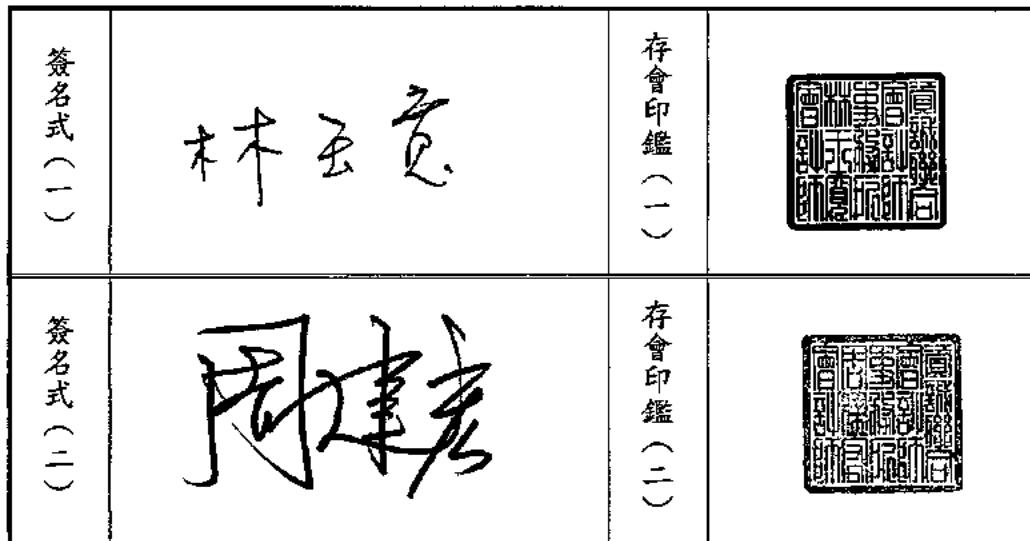 簽名式(一)
林玉寬
存會印鑑(一)
資誠聯合會計師事務所林玉寬會計師
簽名式(二)
周建宏
存會印鑑(二)
資誠聯合會計師事務所周建宏會計師